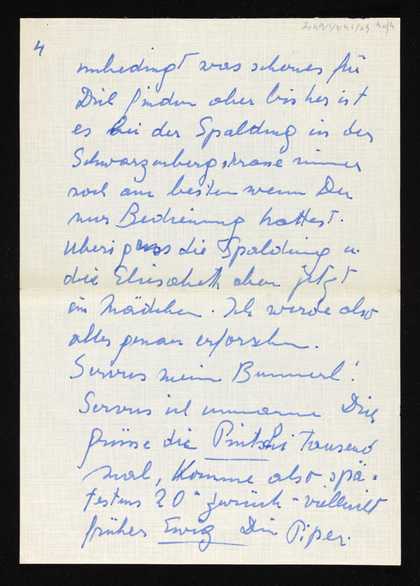 4
unbedingt was schönes für
Dich finden aber bisher ist
es bei der Spalding in der
Schwarzenbergstrasse immer
noch am besten wenn Du
nur Bedienung hattest.
Uberigens die Spalding u.
die Elisabeth aben jetzt
ein Mädchen. Ich werde also
alles genau erforschen.
Servus mein Bummerl!
Servus ich umarme Dich
grüsse die Pintschi Tausend
mal, Komme also spä-
testens 20ᵗ zurück - vielleicht
früher Ewig Din Piper.